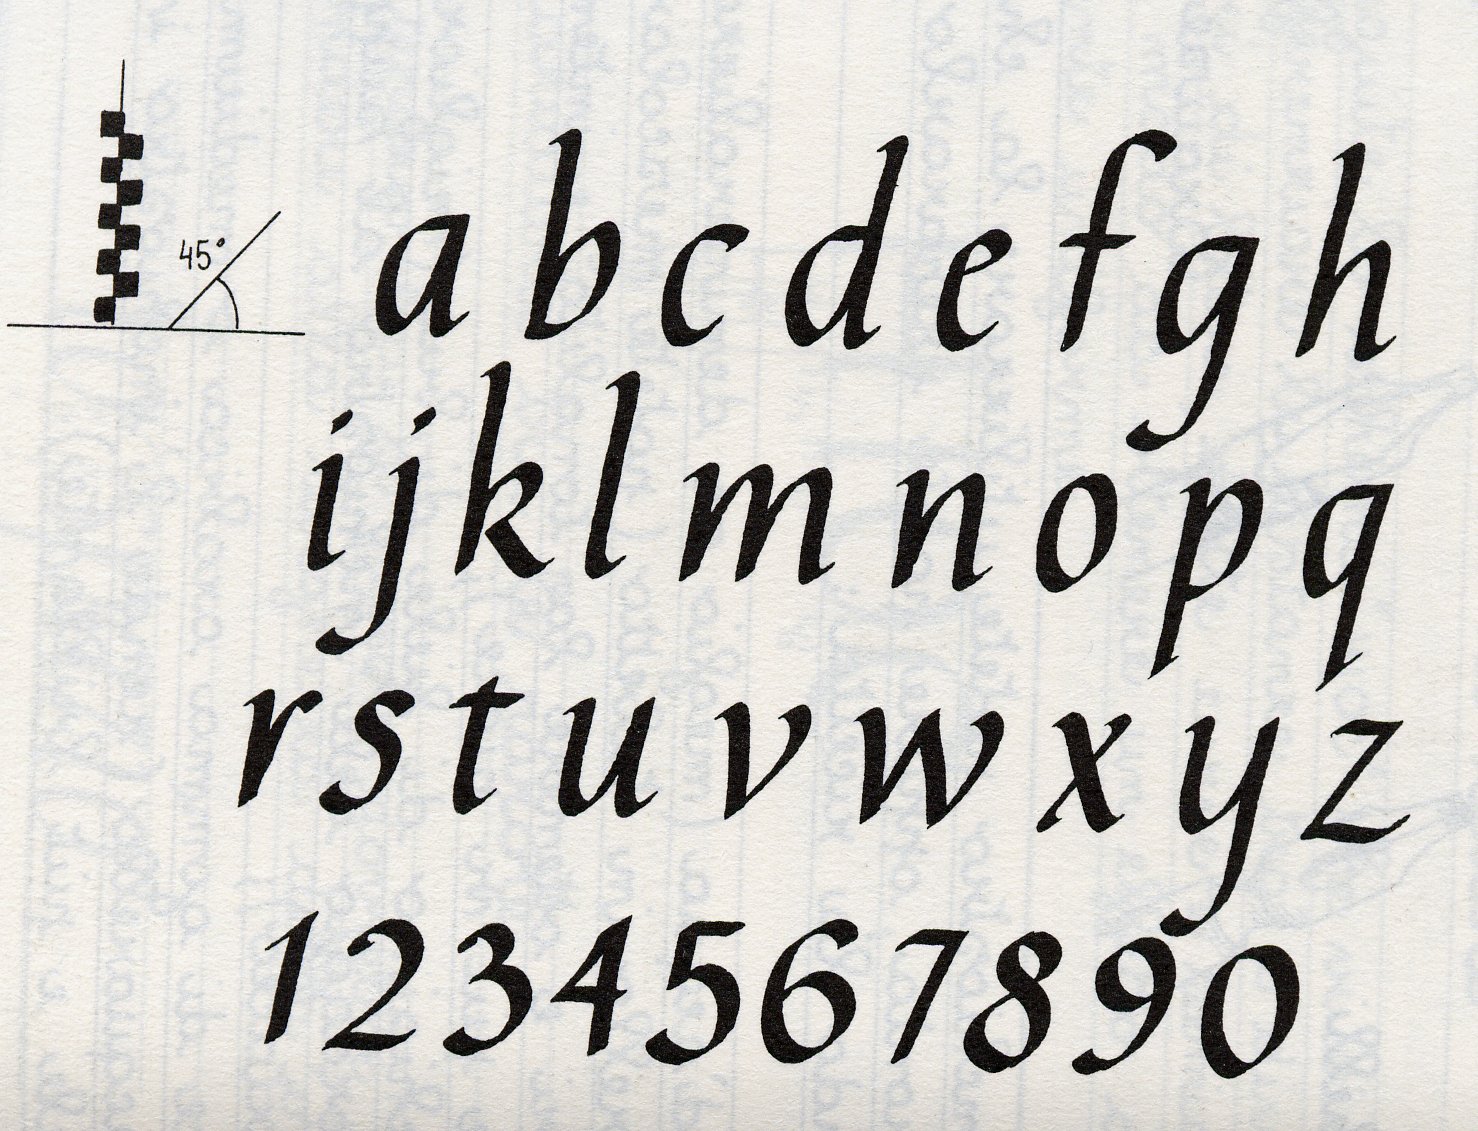 45°
a b c d e f g h
i j k l m n o p q
r s t u v w x y z
1 2 3 4 5 6 7 8 9 0